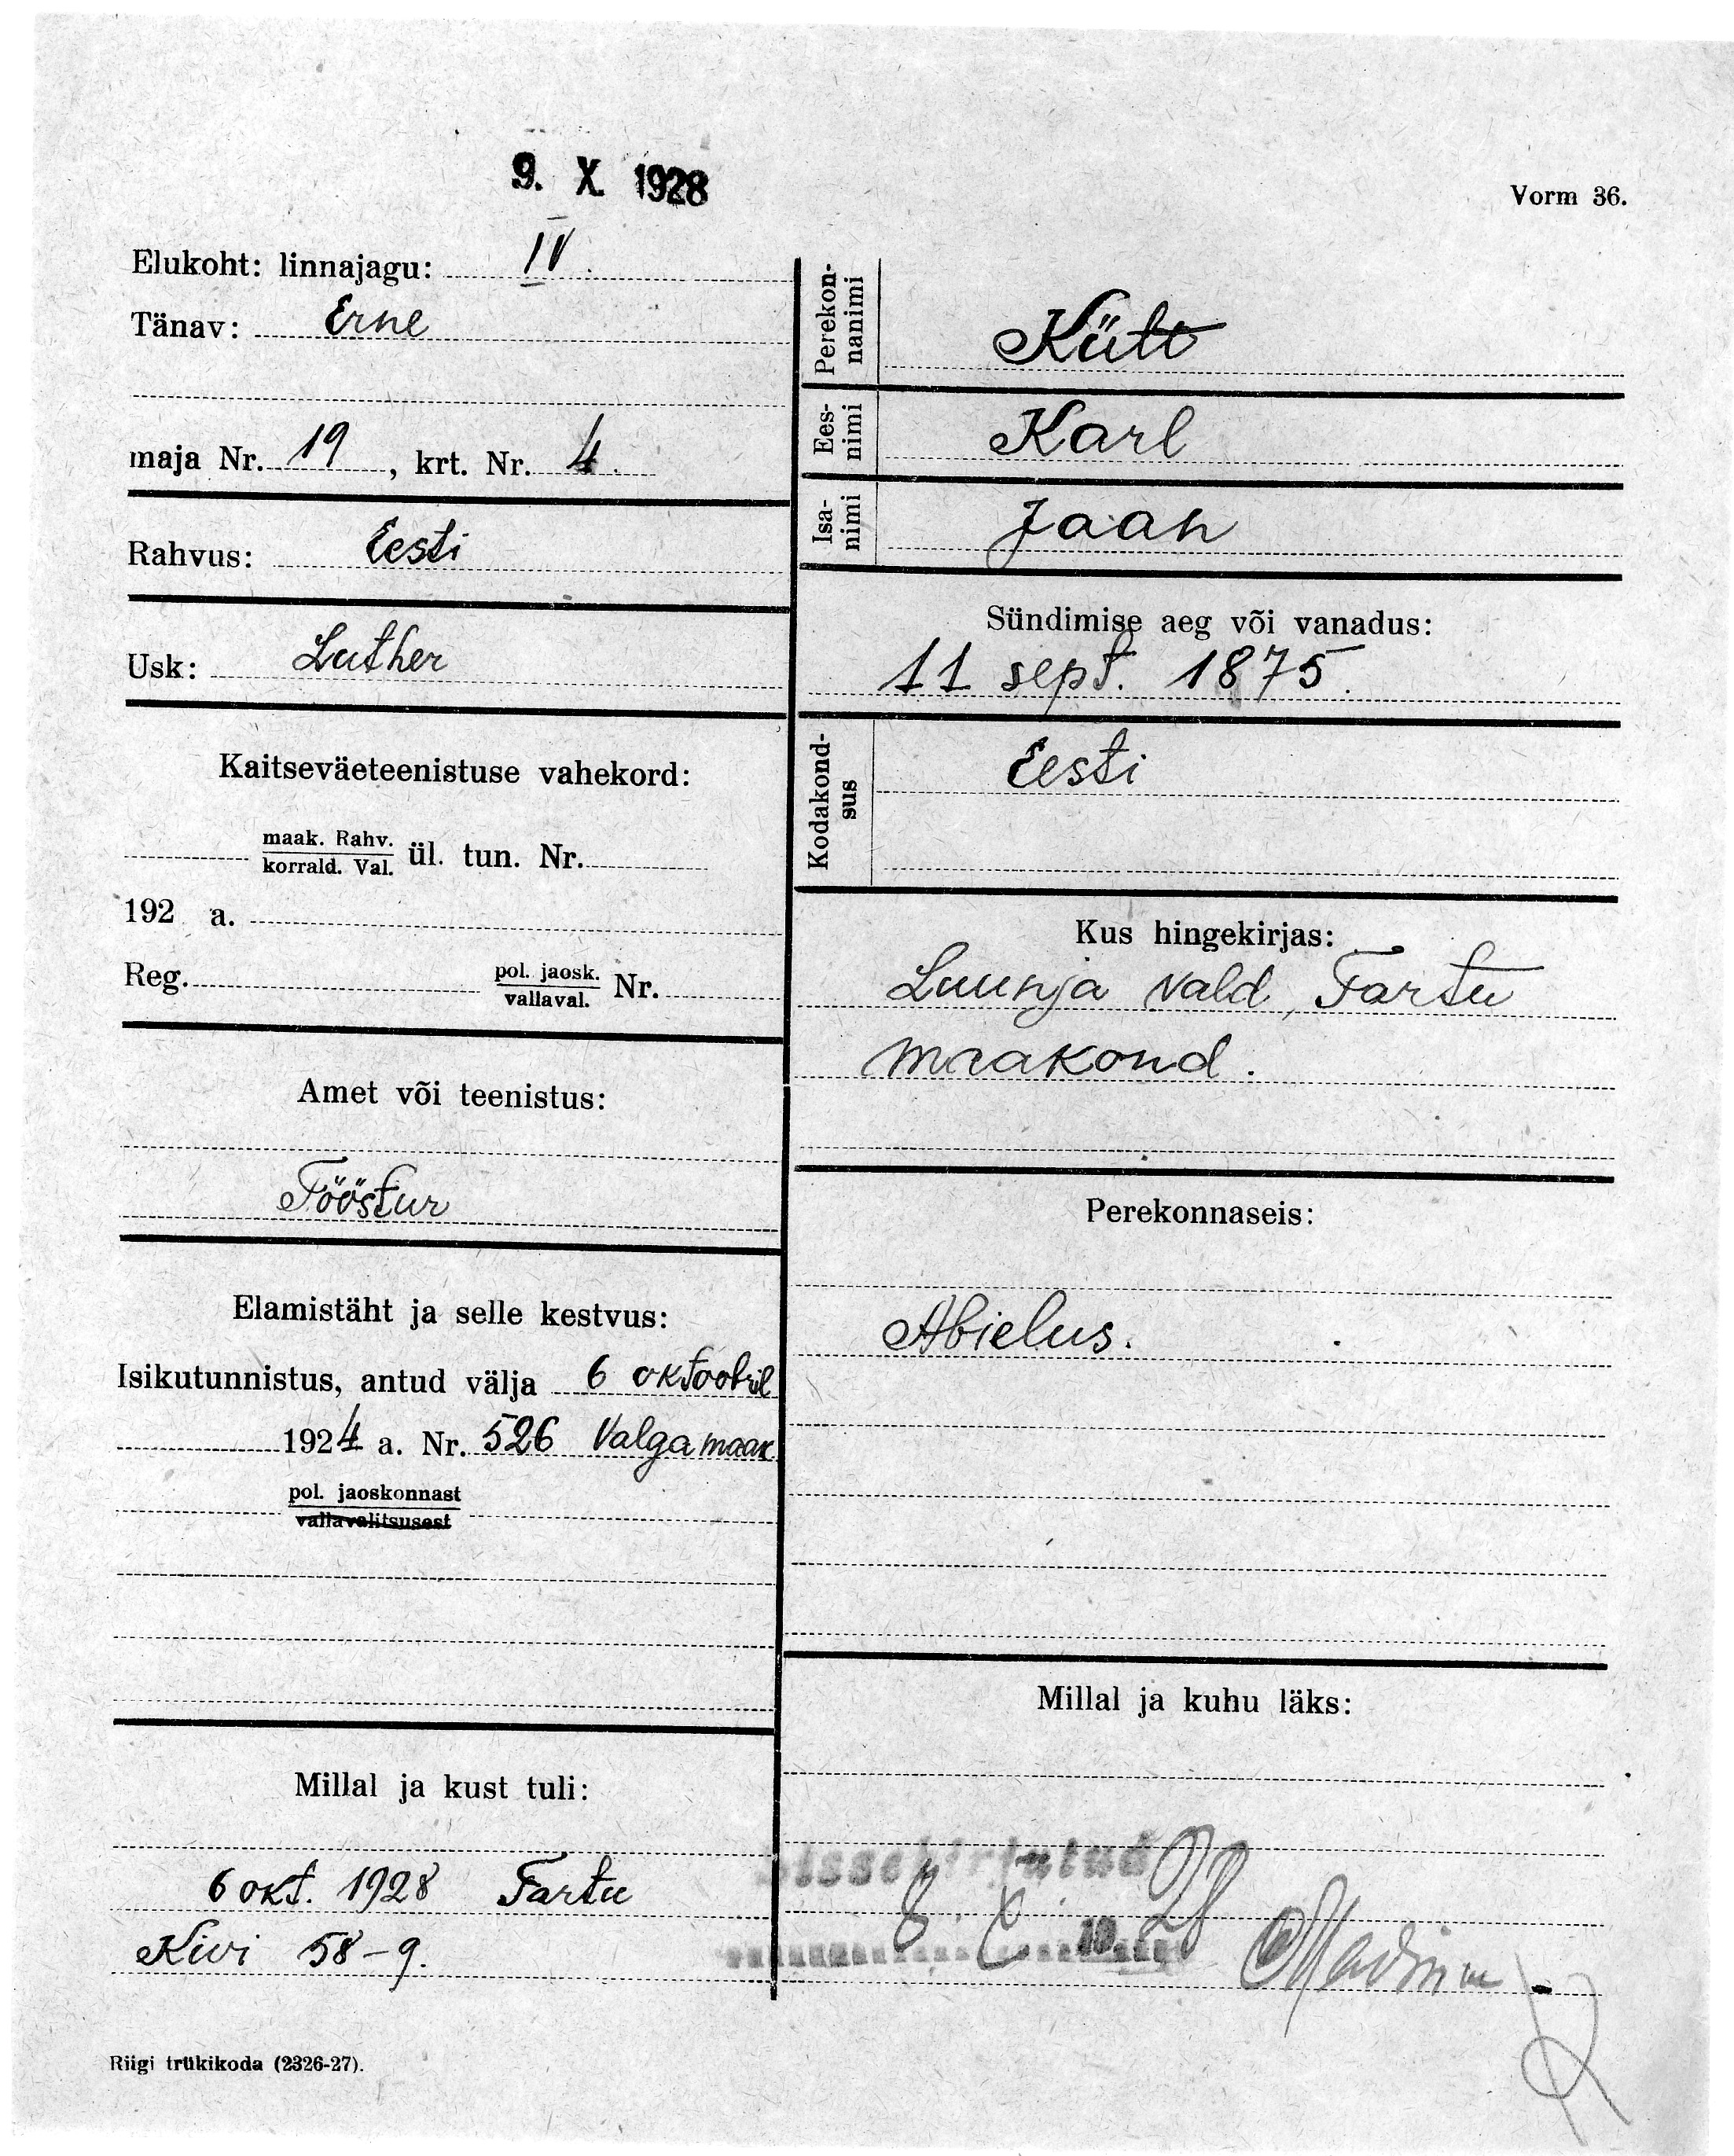 9. X. 1928
Vorm 36.
Elukoht: linnajagu: IV.
Tänav: Erne
maja Nr. 19, krt. Nr. 4.
Rahvus: Eesti
Usk: Luther
Kaitseväeteenistuse vahekord:
maak. Rahv.
korrald. Val. ül. tun. Nr.
192 a.
Reg. pol. jaosk.
vallaval. Nr.
Amet või teenistus:
Tööstur
Elamistäht ja selle kestvus:
Isikutunnistus, antud välja 6 oktoobril
1924 a. Nr. 526 Valgamaak.
pol. jaoskonnast
vallavalitsusest
Millal ja kust tuli:
6 okt. 1928 Tartu
Kivi 58-9.
Riigi trükikoda (2326-27).
Perekon-
nanimi Kütt
Ees-
nimi Karl
Isa-
nimi Jaan
Sündimise aeg või vanadus:
11 sept. 1875.
Kodakond-
sus Eesti
Kus hingekirjas:
Luunja vald, Tartu
maakond.
Perekonnaseis:
Abielus.
Millal ja kuhu läks:
Sissekirjutud
8. X 1928